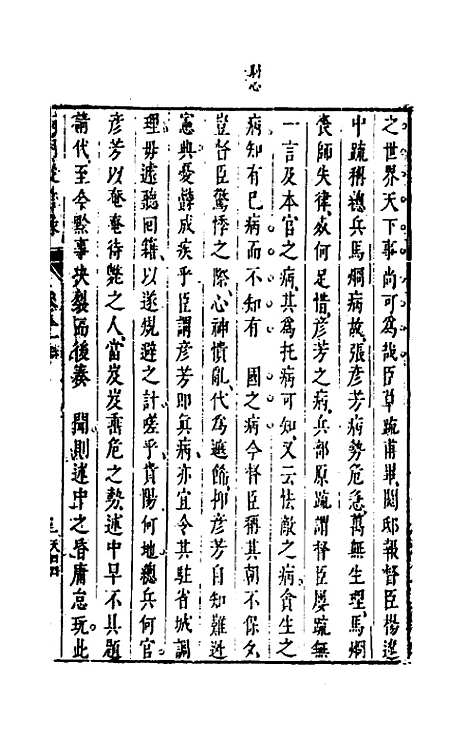 之世界天下事尚可為哉臣草疏甫畢閱邸報督臣楊述
中疏稱總兵馬烱病故張彥芳病勢危急萬無生理馬烱
喪師失律故何足惜彥芳之病兵部原疏謂督臣屢疏無
一言及本官之病其為托病可知又云怯敵之病貪生之
病知有己病而不知有　國之病今督臣稱其朝不保夕
豈督臣驚悸之際心神憒亂代為遮餙抑彥芳自知難逃
憲典憂鬱成疾乎臣謂彥芳即眞病亦宜令其駐省城調
理毋遽聽回籍以遂規避之計嗟乎貴陽何地總兵何官
彥芳以奄奄待斃之人當岌岌垂危之勢述中早不具題
請代至今黔事決裂而後奏　聞則述中之昏庸怠玩此